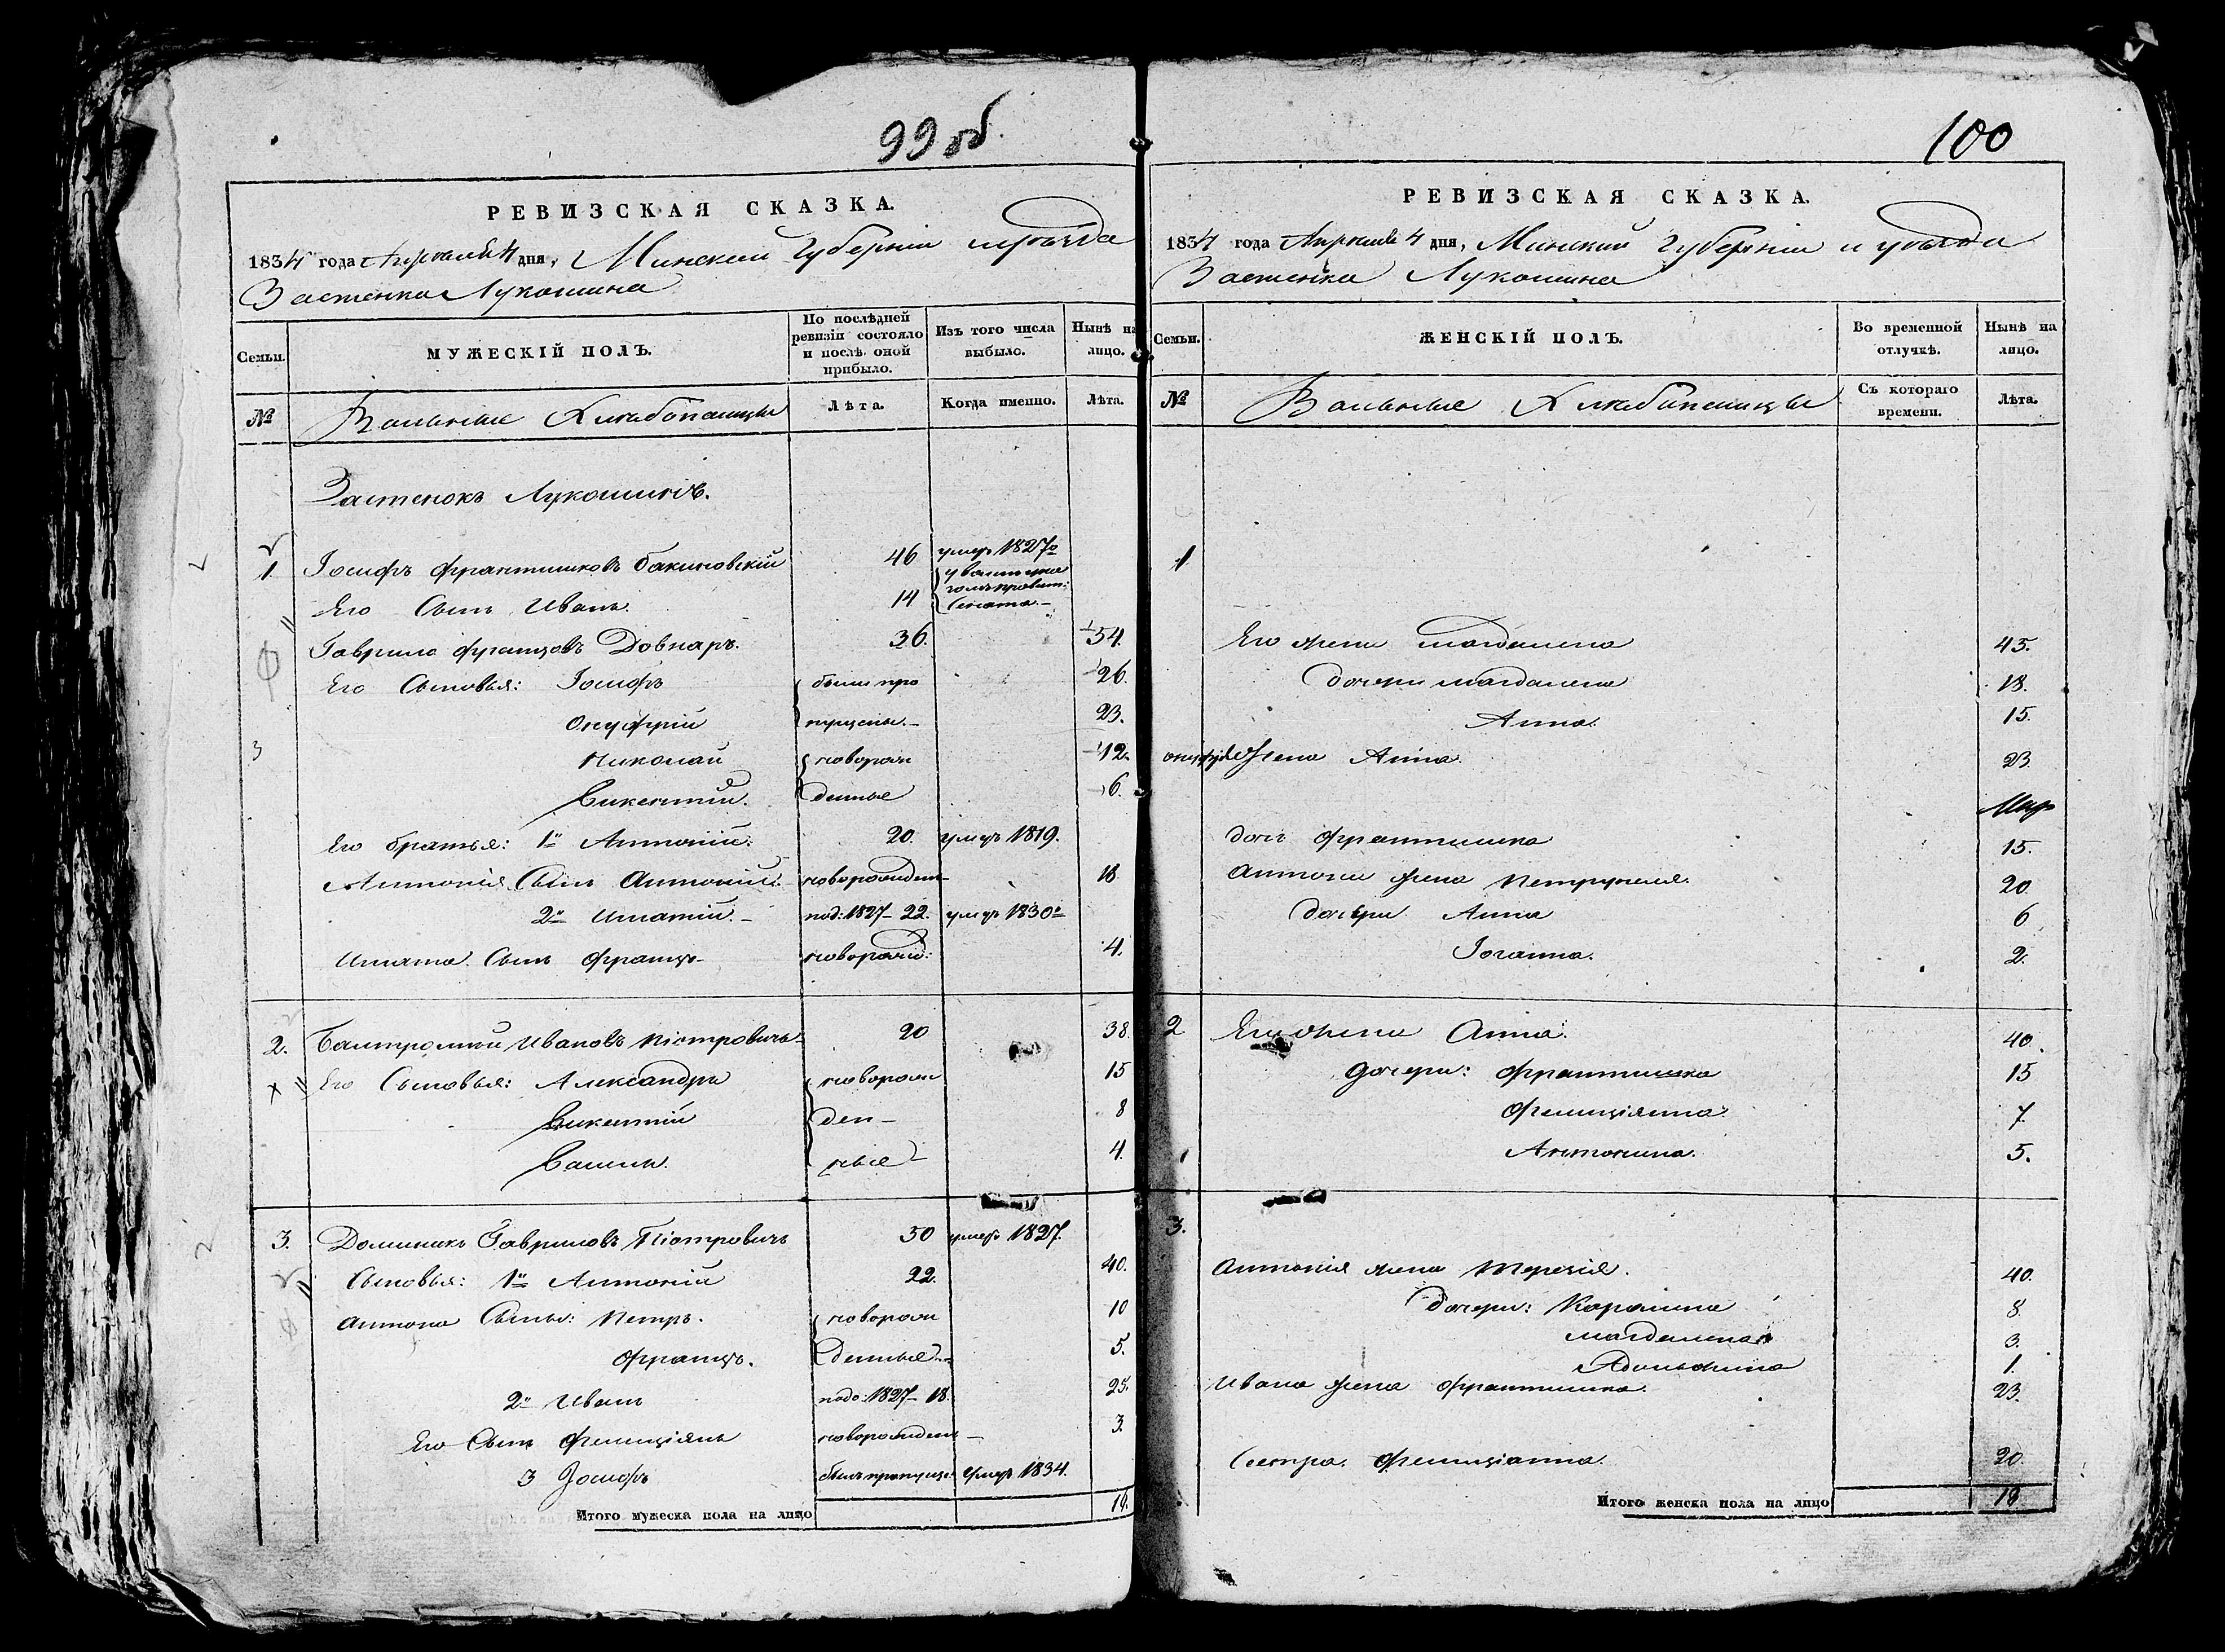 99 об.
РЕВИЗСКАЯ СКАЗКА.
1834 года Апреля 4 дня, Минской Губернии и уезда
Застенка Лукошина
Семьи.
МУЖЕСКІЙ ПОЛЪ.
По послѣдней ревизіи состояло и послѣ оной прибыло.
Изъ того числа выбыло.
Нынѣ на лицо.
№
Вольные Хлебопашцы
Лѣта.
Когда именно.
Лѣта.
Застенокъ Лукошинъ.
1 Іосифъ Франтишковъ Бакиновскій 46 умеръ 1827го
Его Сынъ Иванъ. 14
Гаврило Францовъ Довнаръ. 36. 54.
Его Сыновья: Іосифъ были про 26.
Онуфрій пущены. 23.
3 Николай новорож 12.
Викентій. денные 6.
Его братья: 1й Антоній. 20. умеръ 1819.
Антонія Сынъ Антоній. новорожден 18
2й Игнатій. под: 1827 - 22. умеръ 1830го
Игната Сынъ Францъ новорожд: 4.
2. Балтромей Ивановъ Піотровичъ 20 38
Его Сыновья: Александръ новорож 15
Викентій ден 8
ные 4.
3. Доминикъ Гавриловъ Піотровичъ 50 умеръ 1827.
Сыновья: 1й Антоній 22. 40.
Антона Сыны: Петръ. новорож 10
Францъ. денные 5.
2й Иванъ подо: 1827 - 18. 25.
Его Сынъ Фелиціянъ новорожден 3.
3 Іосифъ былъ пропущ: умеръ 1834.
Итого мужеска пола на лицо 18.
100
РЕВИЗСКАЯ СКАЗКА.
1834 года Апреля 4 дня, Минской Губерніи и уезда
Застенка Лукошина
Семьи.
ЖЕНСКІЙ ПОЛЪ.
Во временной отлучкѣ.
Нынѣ на лицо.
№
Вольные Хлебопашцы
Съ котораго времени.
Лѣта.
1
Его жена Магдалена 45.
дочери Магдалена 18.
Анна. 15.
Онуфрія Жена Анна. 23.
дочь Франтишка 15.
Антонія жена Петрунеля. 20.
дочери Анна 6
Іоганна. 2.
2 Его жена Анна. 40.
дочери: Франтишка 15
Фелиціянна 7.
Антонина. 5.
3.
Антонія жена Терезія. 40.
дочери: Каролина 8
Магдалена 3.
1.
Ивана жена Франтишка. 23.
Сестра Фелиціанна. 20.
Итого женска пола на лицо 18.